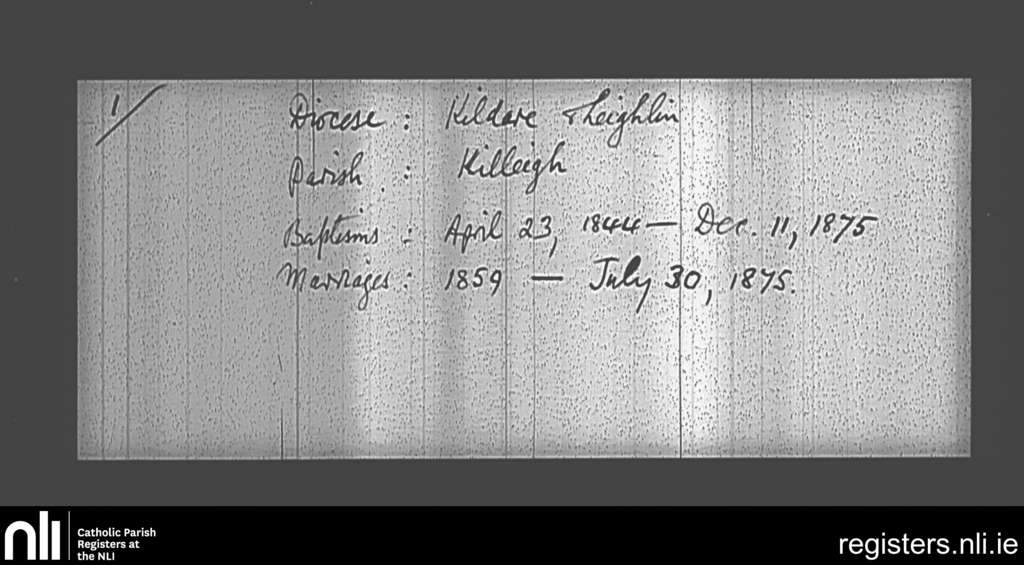 1/
Diocese : Kildare & Leighlin
Parish : Killeigh
Baptisms : April 23, 1844 — Dec. 11, 1875
Marriages : 1859 — July 30, 1875.
nli
Catholic Parish
Registers at
the NLI
registers.nli.ie